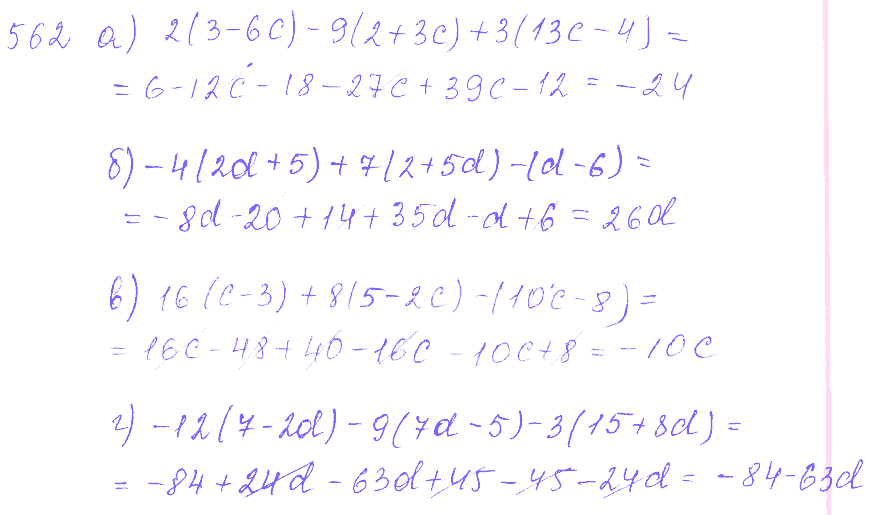 562 а) 2(3-6c)-9(2+3c)+3(13c-4)=
=6-12c-18-27c+39c-12=-24
б) -4(2d+5)+7(2+5d)-(d-6)=
=-8d-20+14+35d-d+6=26d
в) 16(c-3)+8(5-2c)-(10c-8)=
=16c-48+40-16c-10c+8=-10c
г) -12(7-2d)-9(7d-5)-3(15+8d)=
=-84+24d-63d+45-45-24d=-84-63d